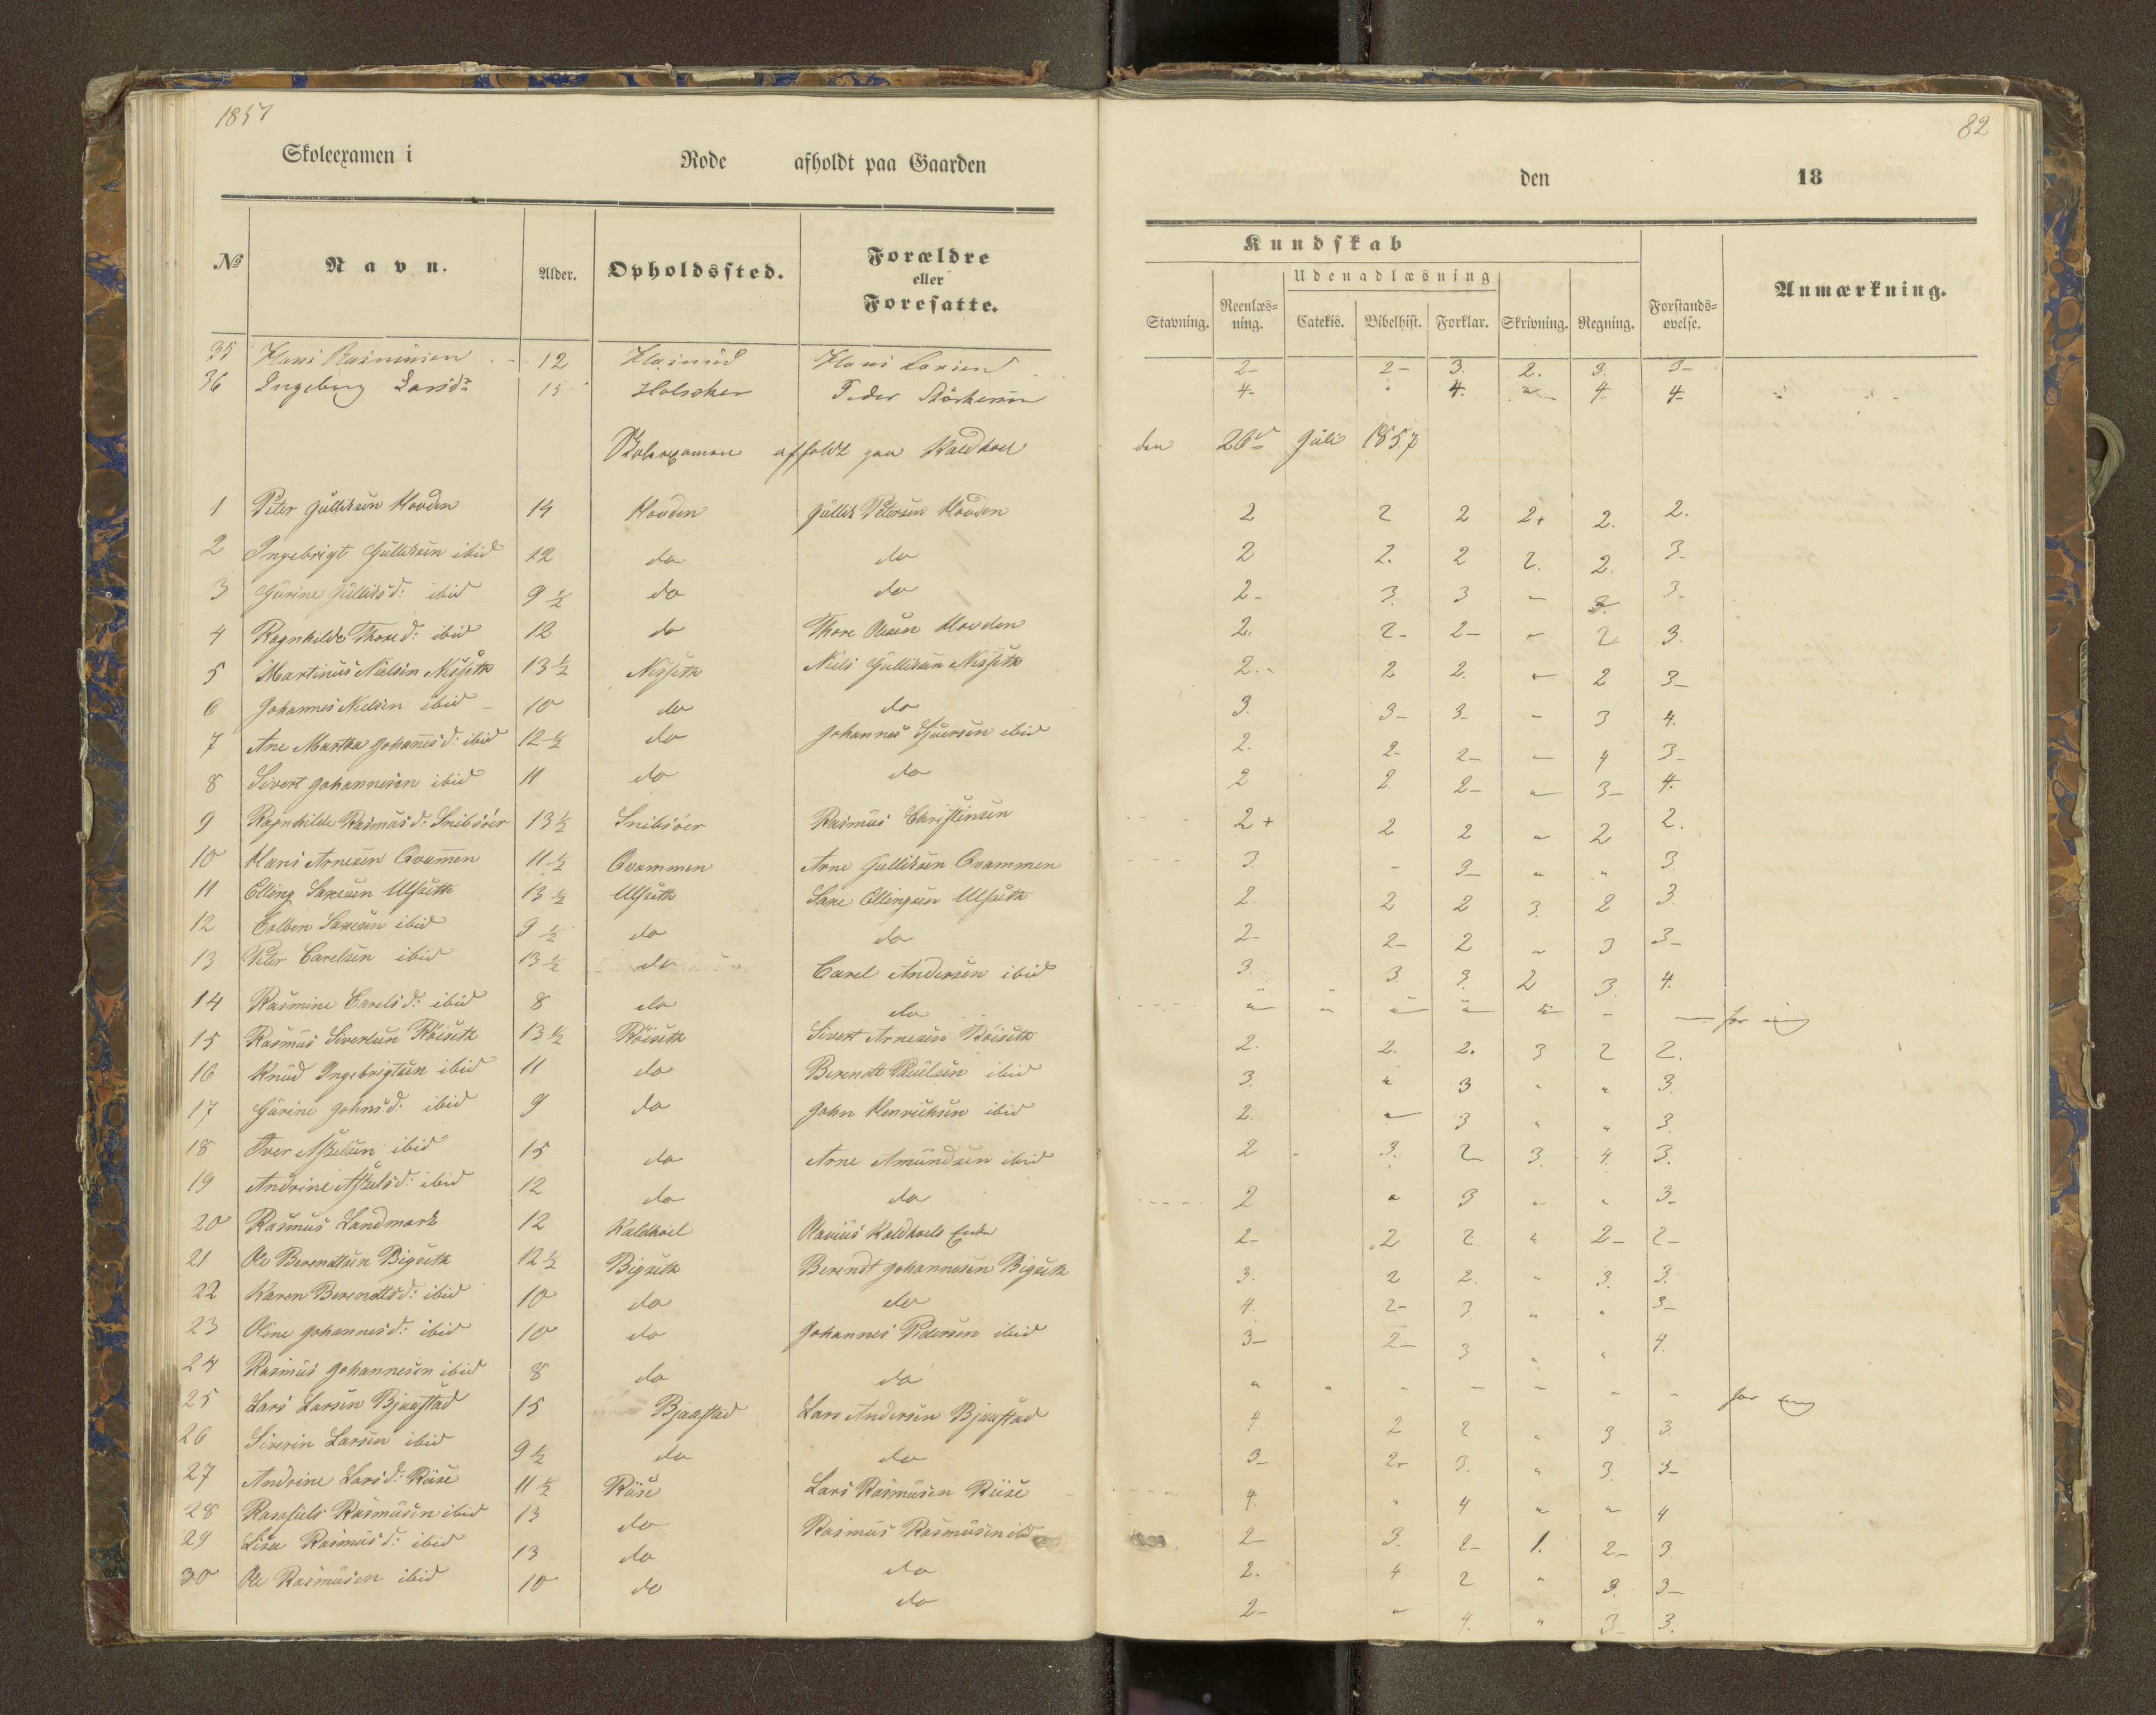 1857
82
Skoleexamen i Rode afholdt paa Gaarden den 18
Kundskab
Udenadlæsning
№ Navn. Alder. Opholdssted. Forældre eller Foresatte. Stavning. Reenlæsning. Catekis. Bibelhist. Forklar. Skrivning. Regning. Forstandsøvelse. Anmærkning.
35 Hans Rasmusen 12 Hans Larsen 2- 2- 3. 2. 3. 3-
36 Ingeborg Larsdr 15 Peder 4- " 4. " 4. 4-
Skoleexamen afholdt paa Kaldhoel den 26de Juli 1857
1 Peter Gulliksen Hovden 14 Hovden Gullik Petersen Hovden 2 2 2 2+ 2. 2.
2 Ingebrigt Gulliksen ibid 12 do do 2 2. 2 2. 2. 3-
3 Gurine Gulliksd: ibid 9 1/2 do do 2- 3. 3 - 3. 3-
4 Ragnhilde Thored: ibid 12 do Thore Olsen Hovden 2. 2- 2- " 2 3.
5 Martinus Nielsen Nisseth 13 1/2 Nisseth Niels Gulliksen Nisseth 2.- 2 2. " 2 3-
6 Johannes Nielsen ibid 10 do do 3. 3- 3- - 3 4.
7 Ane Martha Johannesd: ibid 12 1/2 do Johannes ibid 2. 2- 2- - 4 3-
8 Sivert Johannesen ibid 11 do do 2 2 2- " 3- 4.
9 Ragnhilde Rasmusd: Snibsöer 13 1/2 Snibsöer Rasmus Christensen 2+ 2 2 " 2 2.
10 Hans Arnesen Qvammen 11 1/2 Qvammen Arne Gulliksen Qvammen 3. - 3- " " 3.
11 Elling Saxesen Ulfseth 13 1/2 Ulfseth Saxe Ellingsen Ulfseth 2. 2 2 3. 2 3.
12 Colben Saxesen ibid 9 1/2 do do 2- 2- 2 " 3 3-
13 Peter Carelsen ibid 13 1/2 do Carel Andersen ibid 3. 3. 3. 2 3. 4.
14 Rasmine Carelsd: ibid 8 do do " " " " " - - for ung
15 Rasmus Sivertsen Röiseth 13 1/2 Röiseth Sivert Arnesen Röiseth 2. 2. 2. 3 2 2.
16 Knud Ingebrigtsen ibid 11 do Berendt Paulsen ibid 3. " 3 " " 3.
17 Gurine Johnsd: ibid 9 do John Henrichsen ibid 2. " 3 " " 3.
18 Iver Askelsen ibid 15 do Arne Amundsen ibid 2 3. 2 3. 4. 3.
19 Andrine Askelsd: ibid 12 do do 2 " 3 " " 3-
20 Rasmus Landmark 12 Kaldhoel Kaldhoels Enke 2- 2 2 " 2- 2-
21 Ole Berendtsen Bigseth 12 1/2 Bigseth Berendt Johannesen Bigseth 3. 2 2. " 3. 3.
22 Karen Berendtsd: ibid 10 do do 4. 2- 3. " " 3-
23 Oline Johannesd: ibid 10 do Johannes Pedersen ibid 3- 2- 3 " " 4.
24 Rasmus Johannesen ibid 8 do do " " - - - - - for ung
25 Lars Larsen Bjaastad 15 Bjaastad Lars Andersen Bjaastad 4. 2 2 " 3 3.
26 Siverin Larsen ibid 9 1/2 do do 3- 2- 3. " 3. 3-
27 Andrine Larsd: Riise 11 1/2 Riise Lars Rasmusen Riise 4. " 4 " " 4
28 Rasmusen ibid 13 do Rasmus Rasmusen ibid 2- 3. 2- 1. 2- 3.
29 Lisa Rasmusd: ibid 13 do do 2. 4 2 " 3. 3-
30 Ole Rasmusen ibid 10 do do 2- " 4. " 3- 3.